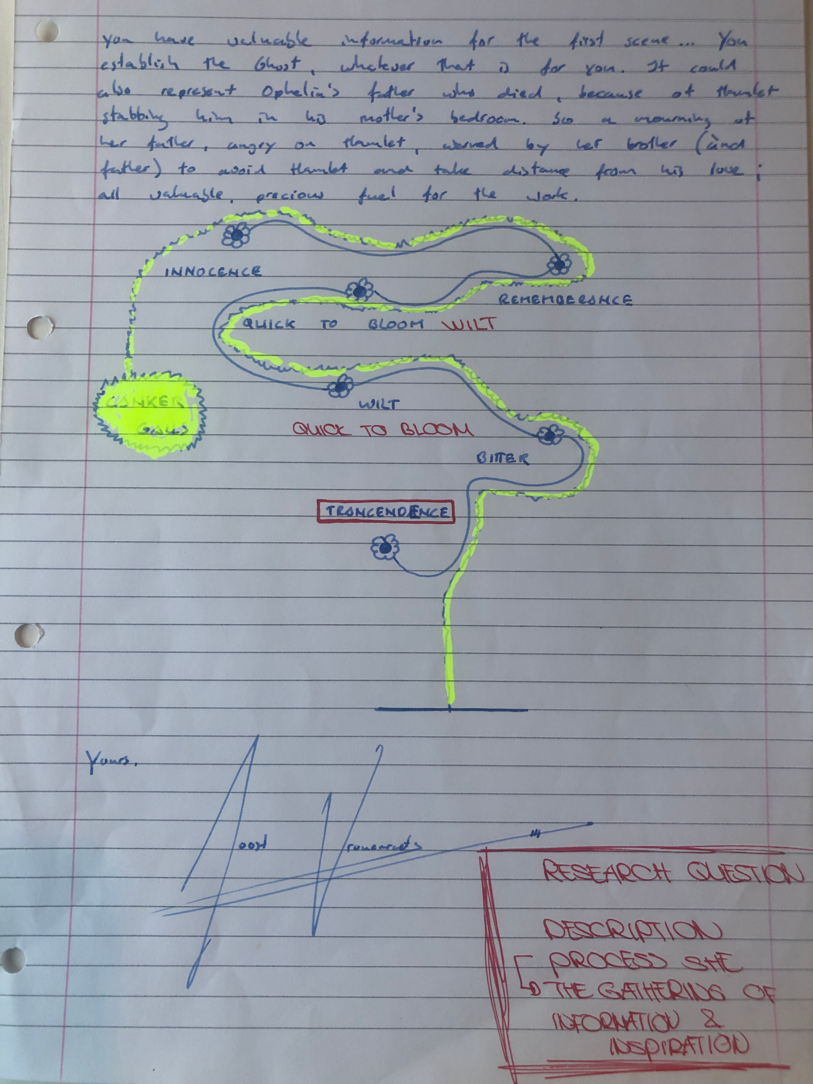 you have valuable information for the first scene... You
establish the Ghost, whatever that is for you. It could
also represent Ophelia's father who died, because of Hamlet
stabbing him in his mother's bedroom. So a mourning of
her father, angry on Hamlet, warned by her brother (and
father) to avoid Hamlet and take distance from his love;
all valuable, precious fuel for the work.
INNOCENCE
REMEMBERANCE
QUICK TO BLOOM WILT
CANKER
GALLS
WILT
QUICK TO BLOOM
BITTER
TRANCENDENCE
Yours,
RESEARCH QUESTION
DESCRIPTION
PROCESS SHE
THE GATHERING OF
INFORMATION &
INSPIRATION